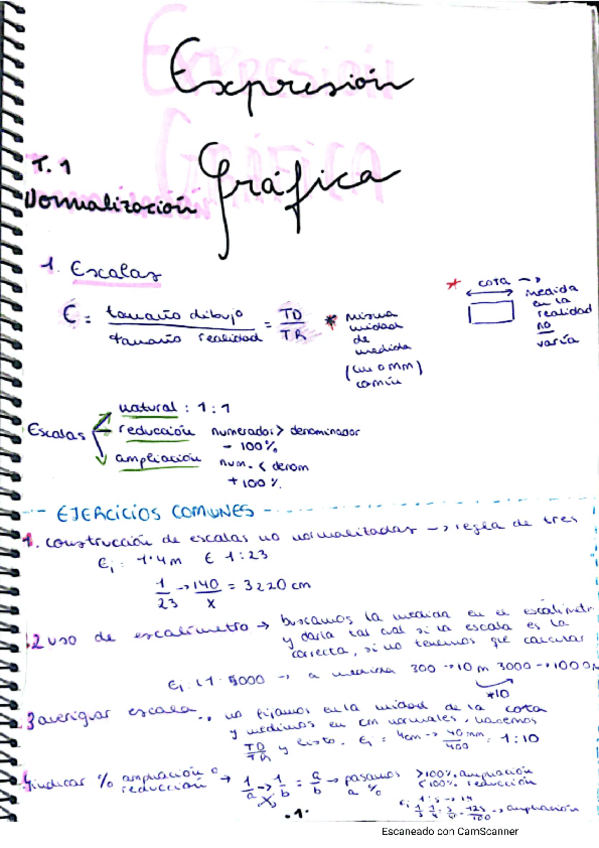 Expresión
Gráfica
T.1
Normalización
1. Escalas
E = tamaño dibujo / tamaño realidad = TD / TR
* misma unidad de medida (cm o mm) común
* cota → medida en la realidad no varía
Escalas
natural : 1:1
reducción numerador > denominador
- 100%
ampliación num. < denom
+ 100%
-- EJERCICIOS COMUNES --
1. construcción de escalas no normalizadas → regla de tres
Ej: 1'4m E 1:23
1/23 → 140/x = 3220 cm
2 uso de escalímetro → buscamos la medida en el escalímetro
y daría tal cual si la escala es la
correcta, si no tenemos que calcular
Ej: 1:5000 → a medida 300 → 10 m 3000 → 100 m
*10
3 averiguar escala → no fijamos en la unidad de la cota
y medimos en cm normales, hacemos
TD/TR y listo. Ej = 4cm → 40 mm/400 = 1:10
4 indicar % ampliación o reducción → 1/a → 1/b = a/b → pasamos a %
>100% ampliación
<100% reducción
→ ampliación
- 1 -
Escaneado con CamScanner